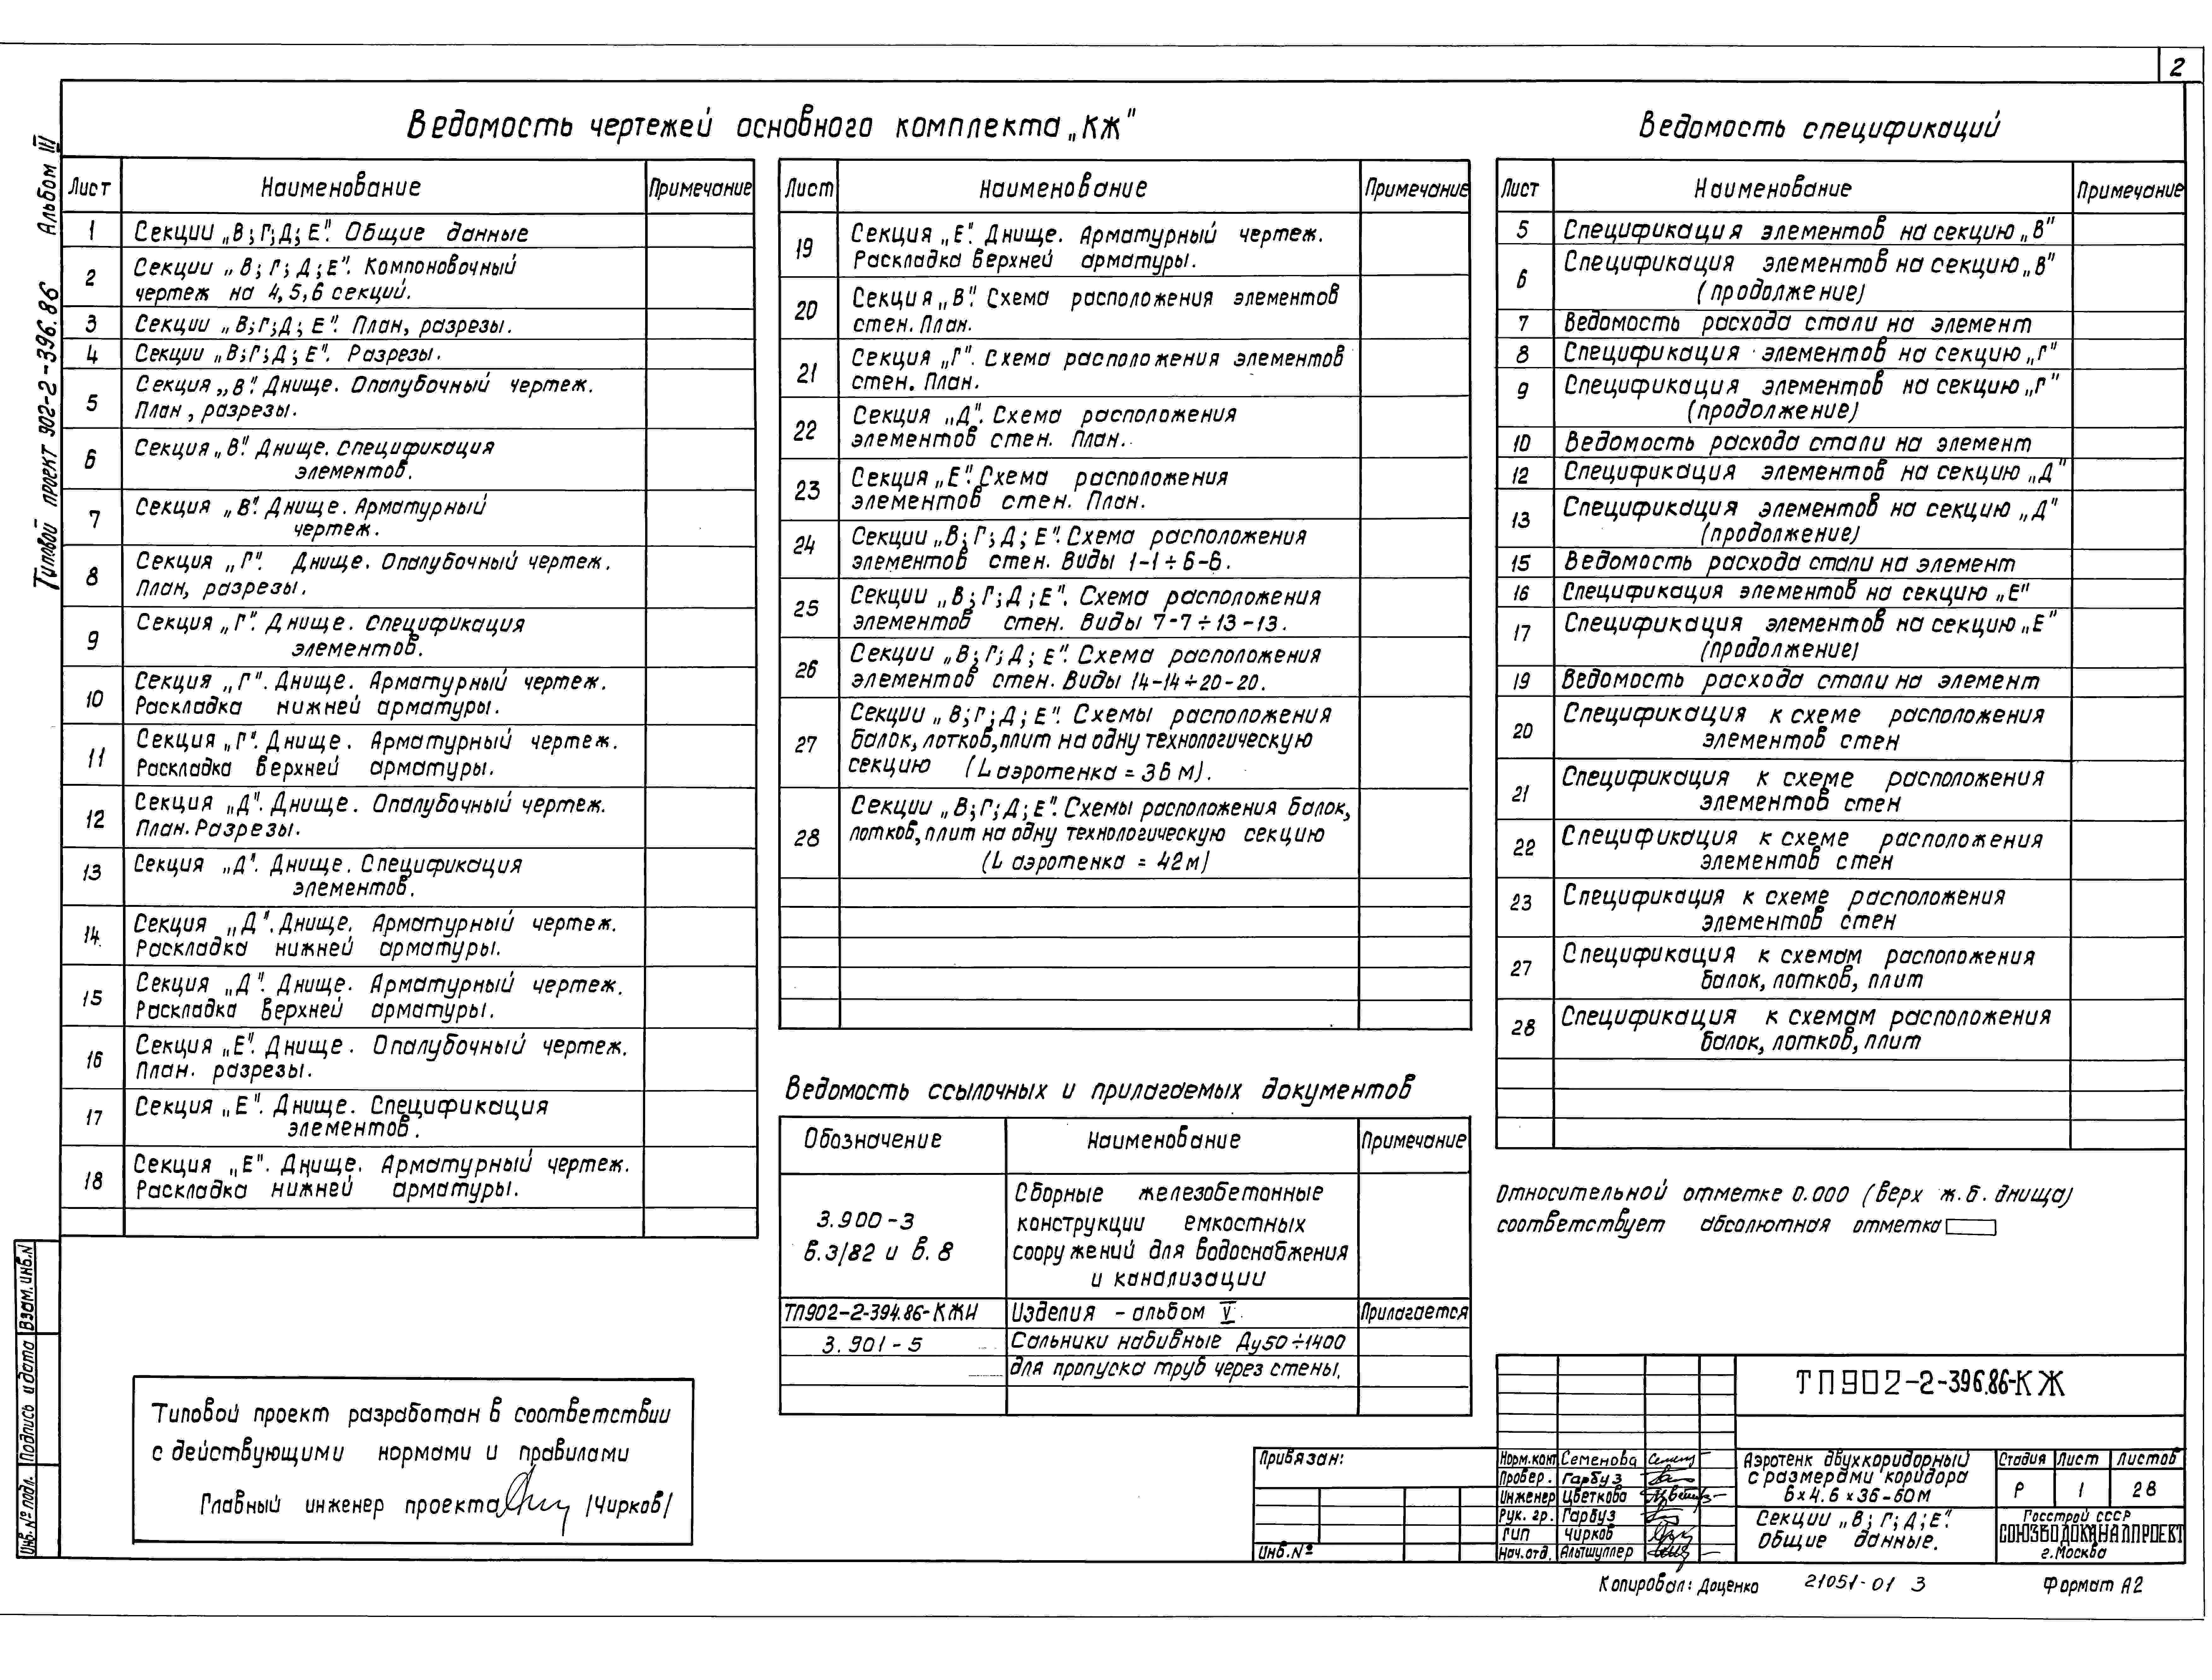 2
Альбом III
Типовой проект 902-2-396.86
Ведомость чертежей основного комплекта „КЖ"
Лист Наименование Примечание
1 Секции „В; Г; Д; Е". Общие данные
2 Секции „В; Г; Д; Е". Компоновочный
чертеж на 4, 5, 6 секций.
3 Секции „В; Г; Д; Е". План, разрезы.
4 Секции „В; Г; Д; Е". Разрезы.
5 Секция „В". Днище. Опалубочный чертеж.
План, разрезы.
6 Секция „В". Днище. Спецификация
элементов.
7 Секция „В". Днище. Арматурный
чертеж.
8 Секция „Г". Днище. Опалубочный чертеж.
План, разрезы.
9 Секция „Г". Днище. Спецификация
элементов.
10 Секция „Г". Днище. Арматурный чертеж.
Раскладка нижней арматуры.
11 Секция „Г". Днище. Арматурный чертеж.
Раскладка верхней арматуры.
12 Секция „Д". Днище. Опалубочный чертеж.
План. Разрезы.
13 Секция „Д". Днище. Спецификация
элементов.
14 Секция „Д". Днище. Арматурный чертеж.
Раскладка нижней арматуры.
15 Секция „Д". Днище. Арматурный чертеж.
Раскладка верхней арматуры.
16 Секция „Е". Днище. Опалубочный чертеж.
План. разрезы.
17 Секция „Е". Днище. Спецификация
элементов.
18 Секция „Е". Днище. Арматурный чертеж.
Раскладка нижней арматуры.
Лист Наименование Примечание
19 Секция „Е". Днище. Арматурный чертеж.
Раскладка верхней арматуры.
20 Секция „В". Схема расположения элементов
стен. План.
21 Секция „Г". Схема расположения элементов
стен. План.
22 Секция „Д". Схема расположения
элементов стен. План.
23 Секция „Е". Схема расположения
элементов стен. План.
24 Секции „В; Г; Д; Е". Схема расположения
элементов стен. Виды 1-1÷6-6.
25 Секции „В; Г; Д; Е". Схема расположения
элементов стен. Виды 7-7÷13-13.
26 Секции „В; Г; Д; Е". Схема расположения
элементов стен. Виды 14-14÷20-20.
27 Секции „В; Г; Д; Е". Схемы расположения
балок, лотков, плит на одну технологическую
секцию (L аэротенка = 36 м).
28 Секции „В; Г; Д; Е". Схемы расположения балок,
лотков, плит на одну технологическую секцию
(L аэротенка = 42м)
Ведомость ссылочных и прилагаемых документов
Обозначение Наименование Примечание
3.900-3
в.3/82 и в. 8
Сборные железобетонные
конструкции емкостных
сооружений для водоснабжения
и канализации
ТП902-2-394.86-КЖИ Изделия - альбом V. Прилагается
3.901-5 Сальники набивные Ду50÷1400
для пропуска труб через стены.
Ведомость спецификаций
Лист Наименование Примечание
5 Спецификация элементов на секцию „В"
6 Спецификация элементов на секцию „В"
(продолжение)
7 Ведомость расхода стали на элемент
8 Спецификация элементов на секцию „Г"
9 Спецификация элементов на секцию „Г"
(продолжение)
10 Ведомость расхода стали на элемент
12 Спецификация элементов на секцию „Д"
13 Спецификация элементов на секцию „Д"
(продолжение)
15 Ведомость расхода стали на элемент
16 Спецификация элементов на секцию „Е"
17 Спецификация элементов на секцию „Е"
(продолжение)
19 Ведомость расхода стали на элемент
20 Спецификация к схеме расположения
элементов стен
21 Спецификация к схеме расположения
элементов стен
22 Спецификация к схеме расположения
элементов стен
23 Спецификация к схеме расположения
элементов стен
27 Спецификация к схемам расположения
балок, лотков, плит
28 Спецификация к схемам расположения
балок, лотков, плит
Относительной отметке 0.000 (верх ж.б. днища)
соответствует абсолютная отметка
Типовой проект разработан в соответствии
с действующими нормами и правилами
Главный инженер проекта /Чирков/
Инв.№ подл. Подпись и дата Взам.инв.N
Привязан:
Инв.№
ТП902-2-396.86-КЖ
Норм.конт Семенова
Провер. Гарбуз
Инженер Цветкова
Рук. гр. Гарбуз
ГИП Чирков
Нач.отд. Альтшуллер
Аэротенк двухкоридорный
с размерами коридора
6х4.6х36-60м
Секции „В; Г; Д; Е".
Общие данные.
Стадия Лист Листов
Р 1 28
Госстрой СССР
СОЮЗВОДОКАНАЛПРОЕКТ
г.Москва
Копировал: Доценко 21051-01 3 Формат А2